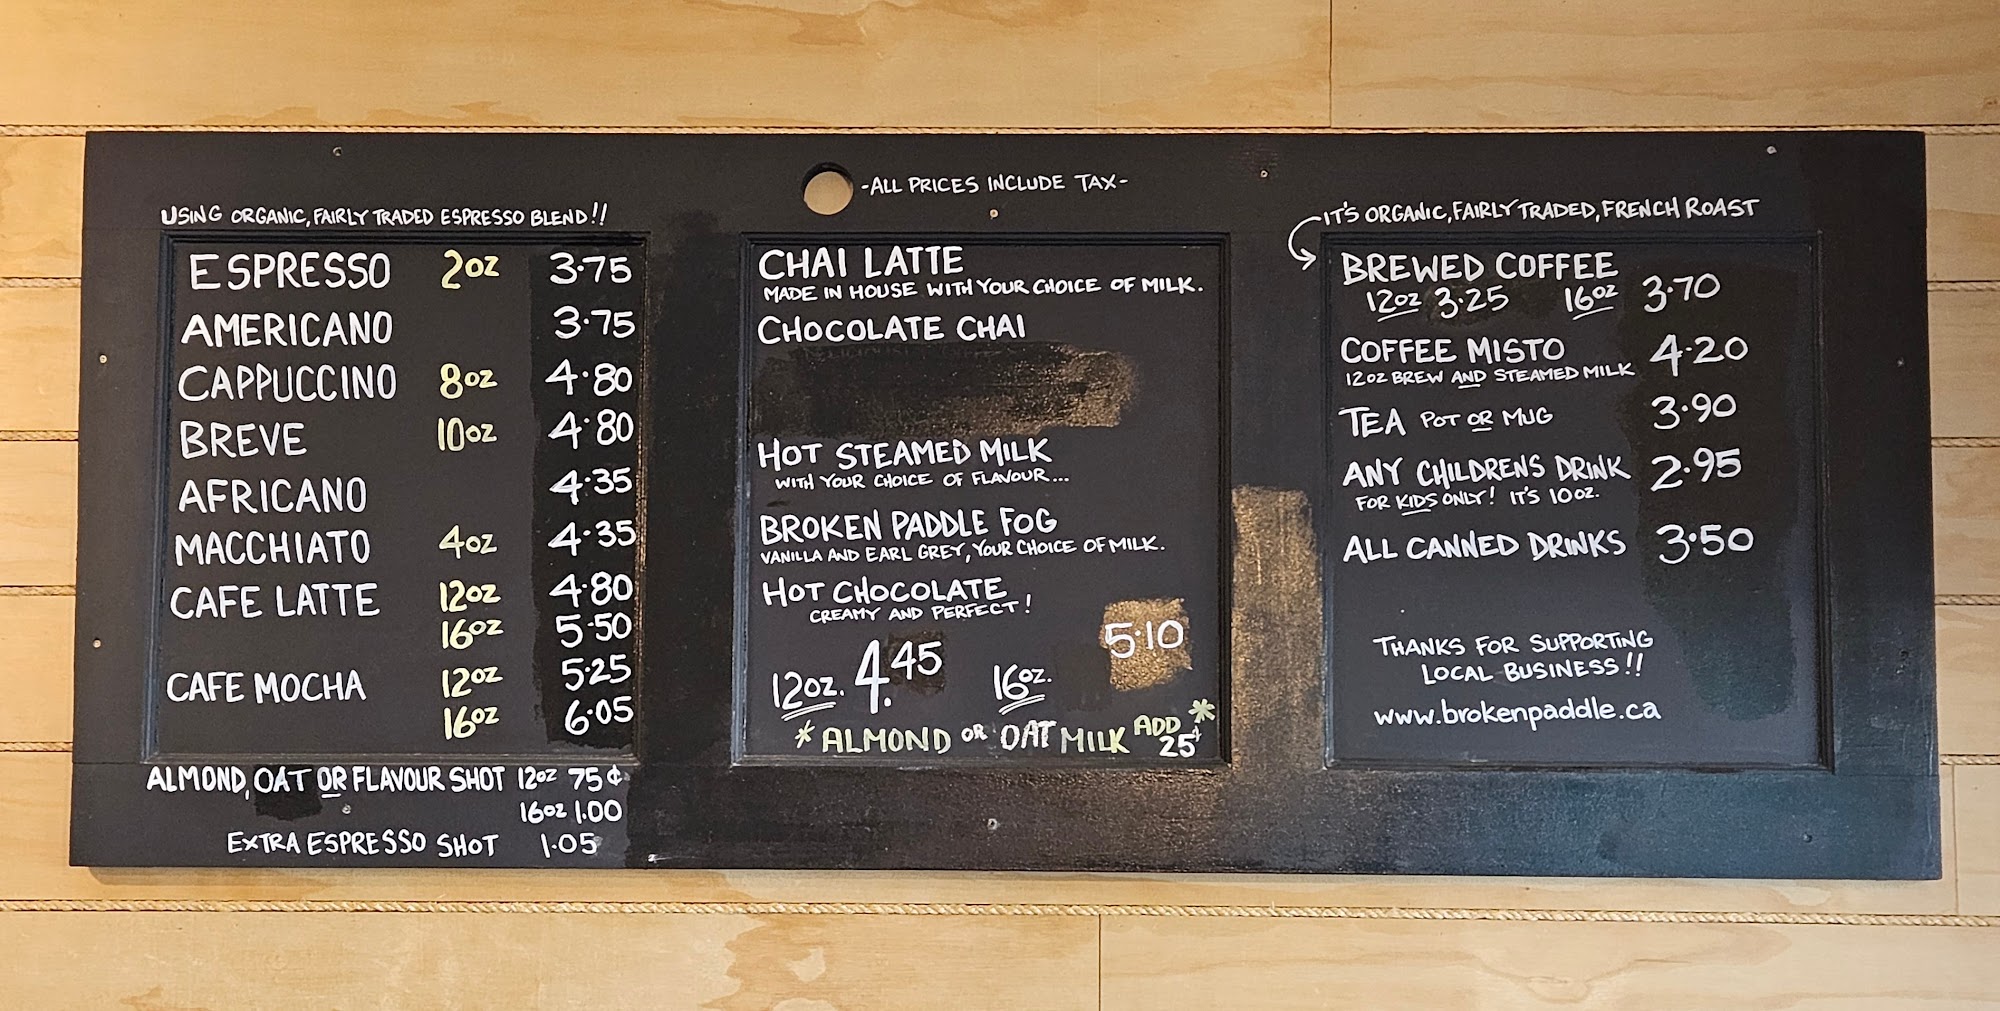 -ALL PRICES INCLUDE TAX-
USING ORGANIC, FAIRLY TRADED ESPRESSO BLEND!!
ESPRESSO 2oz 3.75
AMERICANO 3.75
CAPPUCCINO 8oz 4.80
BREVE 10oz 4.80
AFRICANO 4.35
MACCHIATO 4oz 4.35
CAFE LATTE 12oz 4.80
16oz 5.50
CAFE MOCHA 12oz 5.25
16oz 6.05
ALMOND, OAT OR FLAVOUR SHOT 12oz 75¢
16oz 1.00
EXTRA ESPRESSO SHOT 1.05
CHAI LATTE
MADE IN HOUSE WITH YOUR CHOICE OF MILK.
CHOCOLATE CHAI
HOT STEAMED MILK
WITH YOUR CHOICE OF FLAVOUR...
BROKEN PADDLE FOG
VANILLA AND EARL GREY, YOUR CHOICE OF MILK.
HOT CHOCOLATE
CREAMY AND PERFECT!
12oz. 4.45 16oz. 5.10
*ALMOND OR OAT MILK ADD 25¢*
IT'S ORGANIC, FAIRLY TRADED, FRENCH ROAST
BREWED COFFEE
12oz 3.25 16oz 3.70
COFFEE MISTO 4.20
12OZ BREW AND STEAMED MILK
TEA POT OR MUG 3.90
ANY CHILDRENS DRINK 2.95
FOR KIDS ONLY! IT'S 10OZ.
ALL CANNED DRINKS 3.50
THANKS FOR SUPPORTING
LOCAL BUSINESS!!
www.brokenpaddle.ca